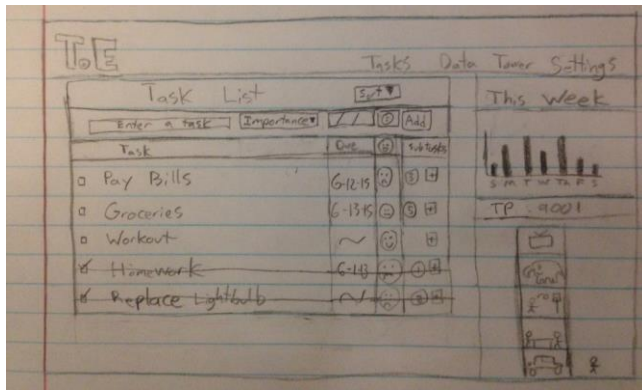 T.E
Tasks Data Tower Settings
Task List
Sort ▼
Enter a task Importance ▼ / / Add
Task Due subtasks
Pay Bills 6-12-15 +
Groceries 6-13-15 +
Workout ~ +
Homework +
Replace Lightbulb ~ +
This Week
S M T W Th F S
TP: 9001